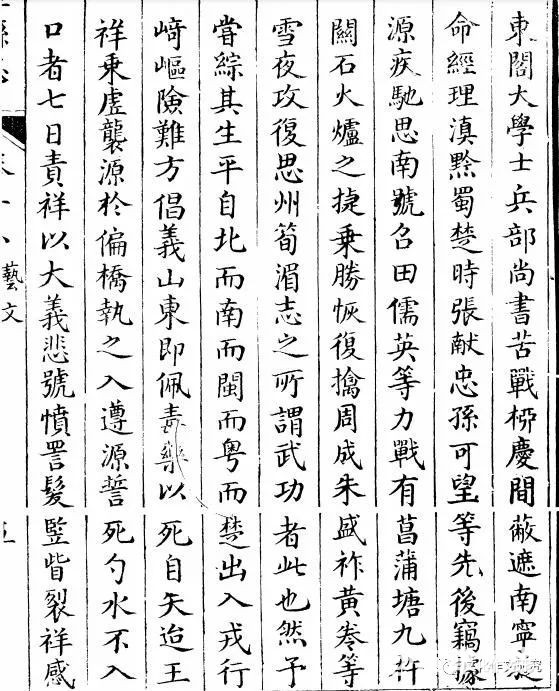 東閣大學士兵部尚書苦戰桞慶間蔽遮南寧
命經理滇黔蜀楚時張献忠孫可望等先後竊據
源疾馳思南號召田儒英等力戰有菖蒲塘九杵
關石火爐之捷乗勝恢復擒周成朱盛祚黄巻等
雪夜攻復思州筍湄志之所謂武功者此也然予
嘗綜其生平自北而南而閩而粤而楚出入戎行
﨑嶇險難方倡義山東即佩毒藥以死自矢迨王
祥乗虛襲源於偏橋執之入遵源誓死勺水不入
口者七日責祥以大義悲號憤詈髮竪眥裂祥感
藝文